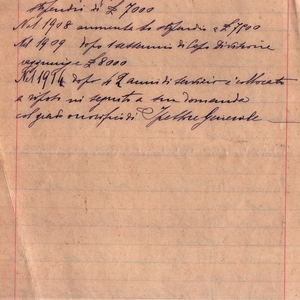 stipendio di £ 7000
Nel 1908 aumento di stipendio a £ 7500
Nel 1909 dopo anni di Capo Divisione
a £ 8000
Nel 1914 dopo 42 anni di servizio è collocato
a riposo in seguito a sua domanda
col grado onorifico di Ispettore Generale